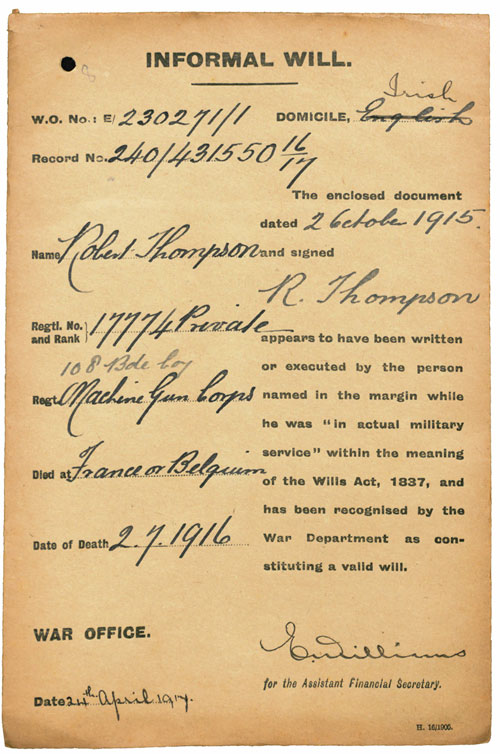 INFORMAL WILL.
8
W.O. No.: E/ 230271/1
Irish
DOMICILE, English
Record No. 240/431550 16/17
The enclosed document
dated 2 October 1915.
Name Robert Thompson
and signed
R. Thompson
Regtl. No. and Rank 17774 Private
108 Bde Coy
Regt. Machine Gun Corps
Died at France or Belgium
Date of Death 2.7.1916
appears to have been written
or executed by the person
named in the margin while
he was "in actual military
service" within the meaning
of the Wills Act, 1837, and
has been recognised by the
War Department as con-
stituting a valid will.
WAR OFFICE.
E. Williams
for the Assistant Financial Secretary.
Date 24th April 1917.
H. 16/1900.